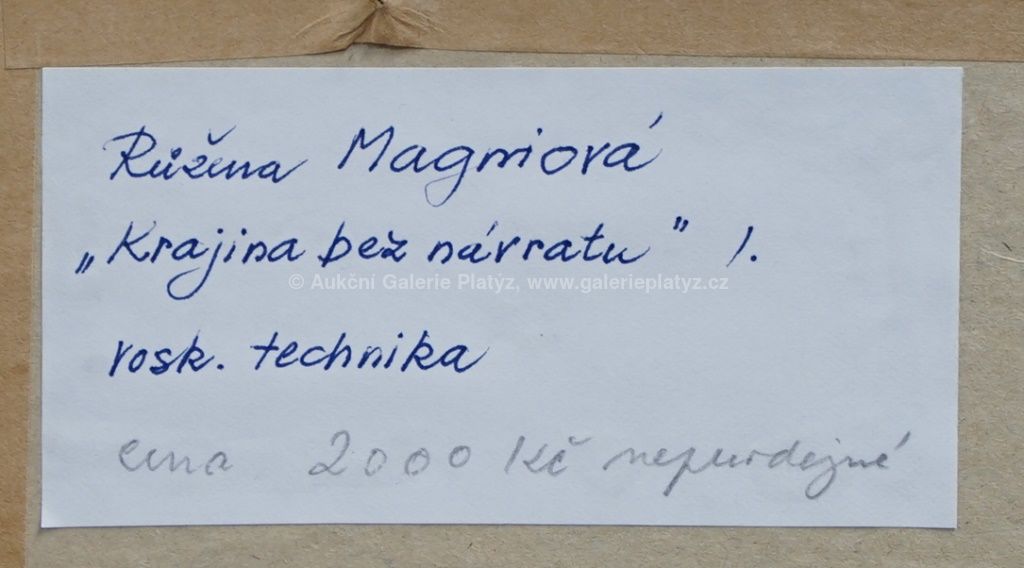 Růžena Magniová
„Krajina bez návratu" 1.
© Aukční Galerie Platýz, www.galerieplatyz.cz
vosk. technika
cena 2000 Kč neprodejné